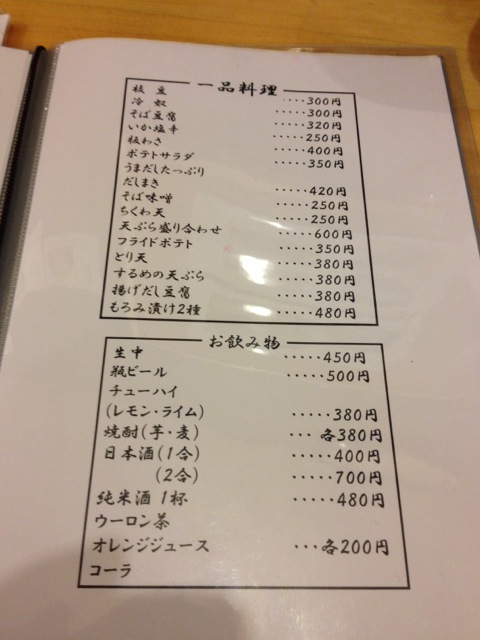 一品料理
枝豆 ････300円
冷奴 ･････300円
そば豆腐 ･････320円
いか塩辛 ･････250円
板わさ ･････400円
ポテトサラダ ･････350円
うまだしたっぷり
だしまき ･････420円
そば味噌 ･････250円
ちくわ天 ･････250円
天ぷら盛り合わせ ･････600円
フライドポテト ･････350円
とり天 ･････380円
するめの天ぷら ･････380円
揚げだし豆腐 ･････380円
もろみ漬け2種 ･････480円
お飲み物
生中 ･････450円
瓶ビール ･････500円
チューハイ
(レモン・ライム) ･････380円
焼酎(芋・麦) ･･･各380円
日本酒(1合) ･････400円
(2合) ･････700円
純米酒 1杯 ･････480円
ウーロン茶
オレンジジュース ･･･各200円
コーラ